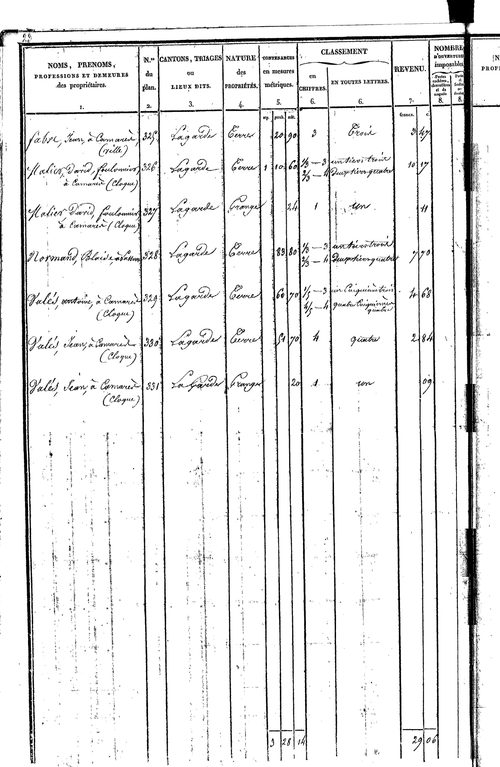 NOMS, PRENOMS, PROFESSIONS ET DEMEURES des propriétaires. N.os du plan. CANTONS, TRIAGES ou LIEUX DITS. NATURE des PROPRIÉTÉS. CONTENANCES en mesures métriques. CLASSEMENT en CHIFFRES. EN TOUTES LETTRES. REVENU. NOMBRE D'OUVERTURES imposables
1. 2. 3. 4. 5. 6. 6. 7. 8. 8.
francs. c.
fabre, Jean, à Camarès 325 Lagarde Terre 20 90 3 Trois 3 47
(ville)
Malier, David, foulonnier, 326 Lagarde Terre 1 10 60 1/3 - 3 un tiers trois 10 17
à Camarès (Cloque) 2/3 - 4 Deux tiers quatre
Malier David, foulonnier, 327 Lagarde Grange 24 1 un 11
à Camarès (Cloque)
Normand, 328 Lagarde Terre 83 80 1/3 - 3 un tiers trois 7 70
2/3 - 4 Deux tiers quatre
Valès, antoine, à Camarès 329 Lagarde Terre 60 70 1/5 - 3 un Cinquième trois 4 68
(Cloque) 4/5 - 4 quatre Cinquièmes
quatre
Valès, Jean, à Camarès 330 Lagarde Terre 51 70 4 quatre 2 84
(Cloque)
Valès, Jean, à Camarès 331 La Garde Grange 20 1 un 09
(Cloque)
3 28 14 29 06